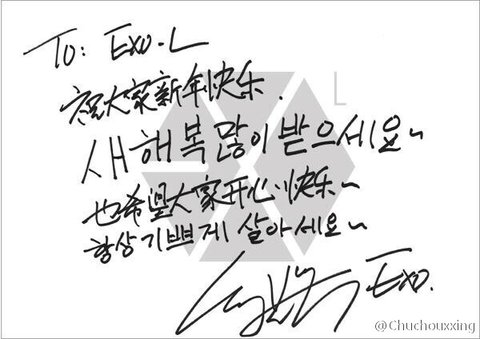 To: EXO-L
祝大家新年快乐.
새해복많이 받으세요~
也希望大家开心快乐~
항상 기쁘게 살아세요~
EXO.
L
@Chuchouxxing